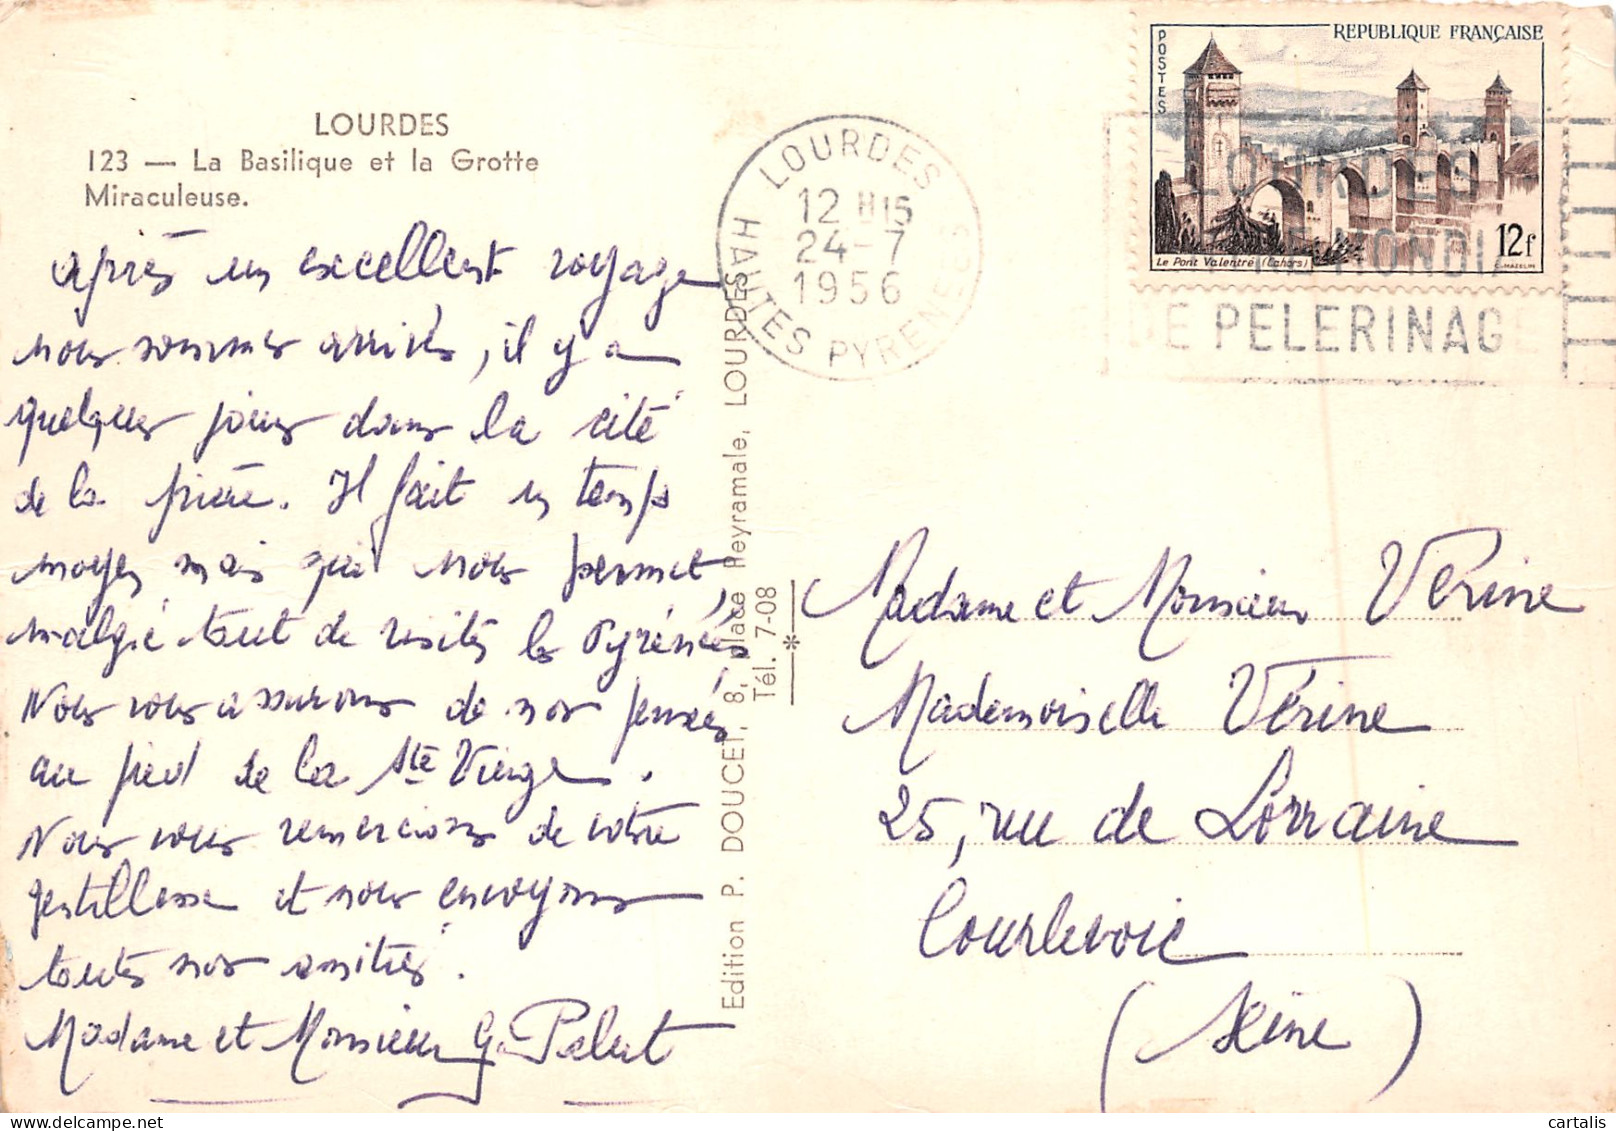 LOURDES
123 — La Basilique et la Grotte
Miraculeuse.
après un excellent voyage
nous sommes arrivés, il y a
quelques jours dans la cité
de la prière. Il fait un temps
moyen mais qui nous permet,
malgré tout de visiter les Pyrénées
Nous vous assurons de nos pensées
au pied de la Ste Vierge.
Nous vous remercions de votre
gentillesse et nous envoyons
toutes nos amitiés.
Madame et Monsieur G. Pelut
Edition P. DOUCET, 8, place Peyramale, LOURDES
Tél. 7-08
LOURDES
12 H 15
24-7
1956
HAUTES PYRENEES
REPUBLIQUE FRANÇAISE
POSTES
Le Pont Valentré (Cahors)
12f
C. MAZELIN
LOURDES
MONDIA
DE PELERINAGE
Madame et Monsieur Vérine
Mademoiselle Vérine
25, rue de Lorraine
Courbevoie
(Seine)
cartalis